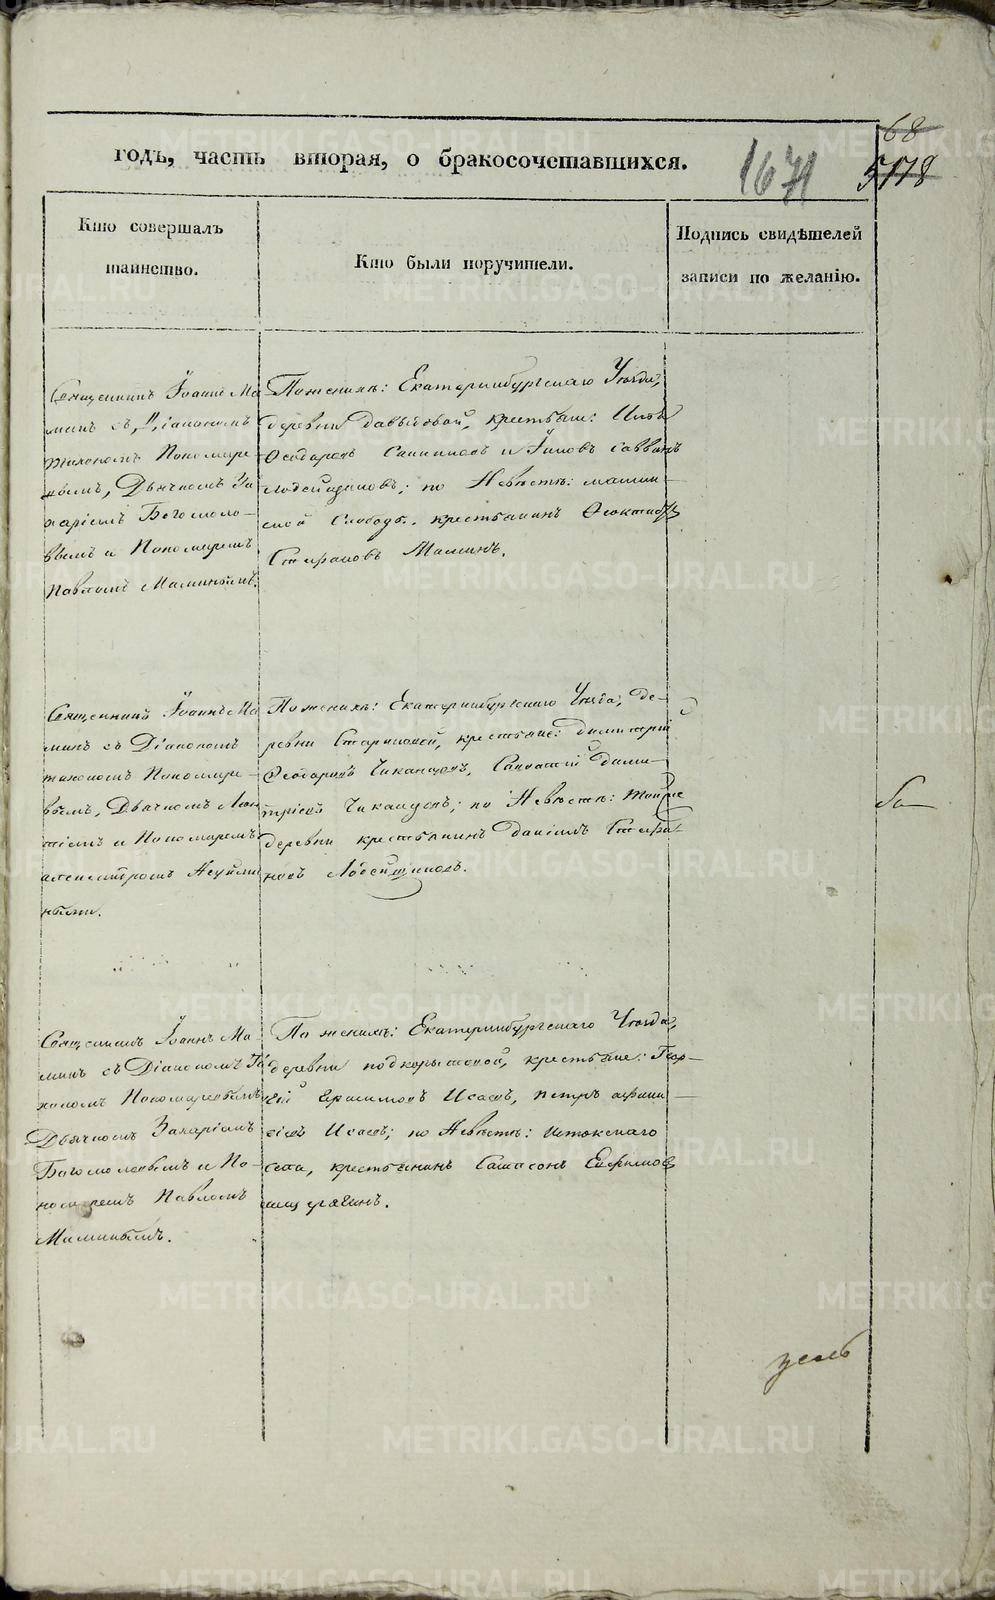 68
5178
1671
годъ, часть вторая, о бракосочетавшихся.
Кто совершалъ
таинство.
Кто были поручители.
Подпись свидѣтелей
записи по желанію.
Священникъ Іоаннъ Ма
минъ съ Діакономъ
Тихономъ Пономаре-
вымъ, Дьячкомъ За
харіемъ Богомоло-
вымъ и Пономаремъ
Павломъ Маминымъ.
По женихѣ: Екатеринбургскаго Уѣзда,
деревни Давыдовой, крестьяне:
Ѳеодоровъ и Савинъ
Лодейщиковъ; по Невѣстѣ: Мамин-
ской Слободы крестьянинъ Ѳеоктистъ
Стефановъ Маминъ.
Священникъ Іоаннъ Ма
минъ съ Діакономъ
Тихономъ Пономаре-
вымъ, Дьячкомъ
и Пономаремъ
Александромъ
По женихѣ: Екатеринбургскаго Уѣзда, де-
ревни крестьяне: Димитрій
Ѳеодоровъ Чиканцовъ, Дими-
тріевъ Чиканцовъ; по Невѣстѣ: той же
деревни крестьянинъ Даніилъ Стефа-
новъ Лодейщиковъ.
Священникъ Іоаннъ Ма-
минъ съ Діакономъ Ти
хономъ Пономаревымъ
Дьячкомъ Захаріемъ
Богомоловымъ и По-
номаремъ Павломъ
Маминымъ.
По женихѣ: Екатеринбургскаго Уѣзда,
деревни Подкорытовой, крестьяне: Геор-
гій Герасимовъ Исаевъ, Петръ Афана-
сіевъ Исаевъ; по Невѣстѣ: Истокскаго
села, крестьянинъ Сампсонъ Евфимовъ
Мещерягинъ.
METRIKI.GASO-URAL.RU